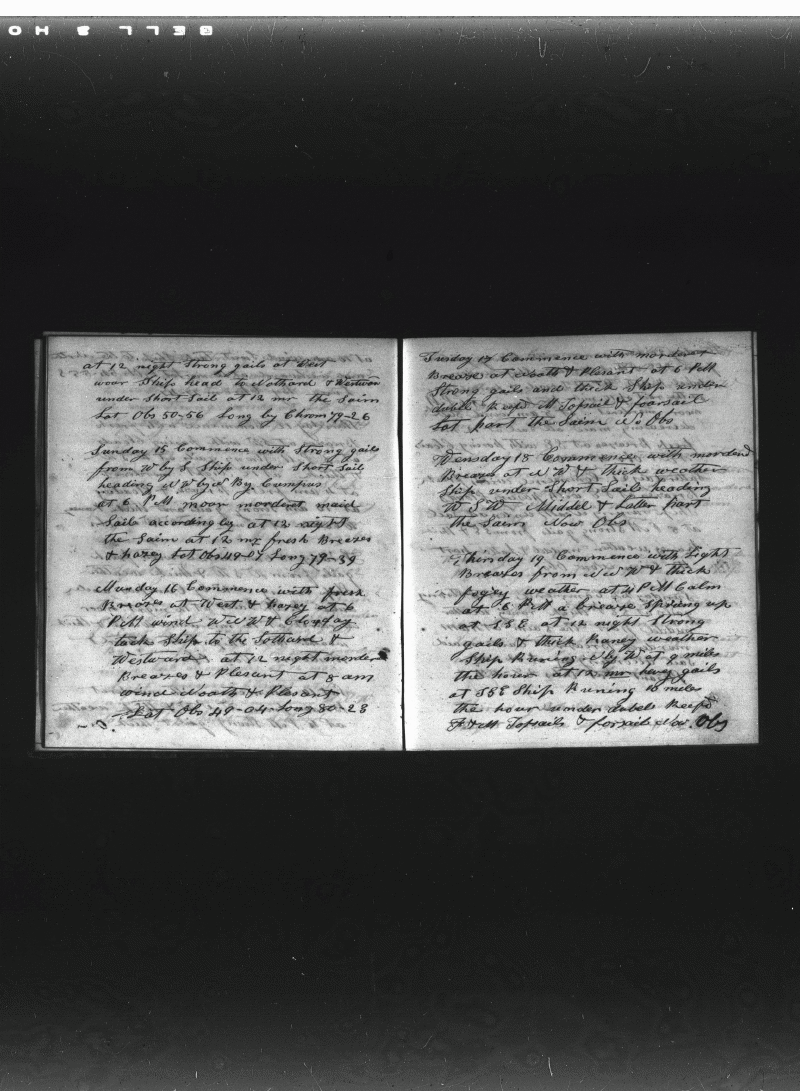 at 12 night Strong gails at West
woor Ship head to Nothard & Westwar
under Short Sail at 12 mr the Saim
Lat Obs 50-56 Long by Chrom 79-26
Sunday 15 Commence with Strong gails
from W by S Ship under Short Sail
heading NW by W By Cumpus
at 6 PM moor mordent maid
Sails accordingly at 12 night
the Saim at 12 mr fresh Breezes
& hazey Lat Obs 49-07 Long 79-39
Munday 16 Commence with fresh
Breazes at West & hazey at 6
PM wind WNW & Clouday
tack Ship to the Sothard &
Westward at 12 night morder
Breazes & Plesant at 8 am
wind Noath & Plesant
Lat Obs 49-04 Long 80-28
Tusday 17 Commence with mordent
Breaze at Noath & Plesant at 6 PM
Strong gails and thick Ship under
dubel Reefd M Topsail & foarsail
Lat part the Saim No Obs
Wensday 18 Commence with mordend
Breaze at NW & thick weather
Ship under Short Sail heading
WSW Middel & Latter Part
the Saim Now Obs
Thirsday 19 Commence with Light
Breazes from NNW & thick
fogey weather at 4 PM Calm
at 6 PM a breaze Spring up
at SSE at 12 night Strong
gails & thick Raney weather
Ship Runing N by W at 9 miles
the hour at 12 mr hevy gails
at SSE Ship Runing 10 miles
the hour under dubels Reefd
F & M Topsails & forsail Now Obs